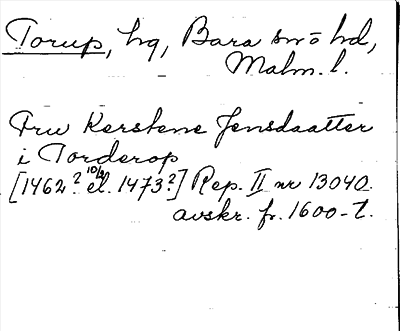 Torup, hg, Bara sn o hd,
Malm. l.
Fru Kerstene Jensdaatter
i Torderop
[1462? 10/2 el. 1473?] Rep. II nr 13040.
avskr. fr. 1600-t.